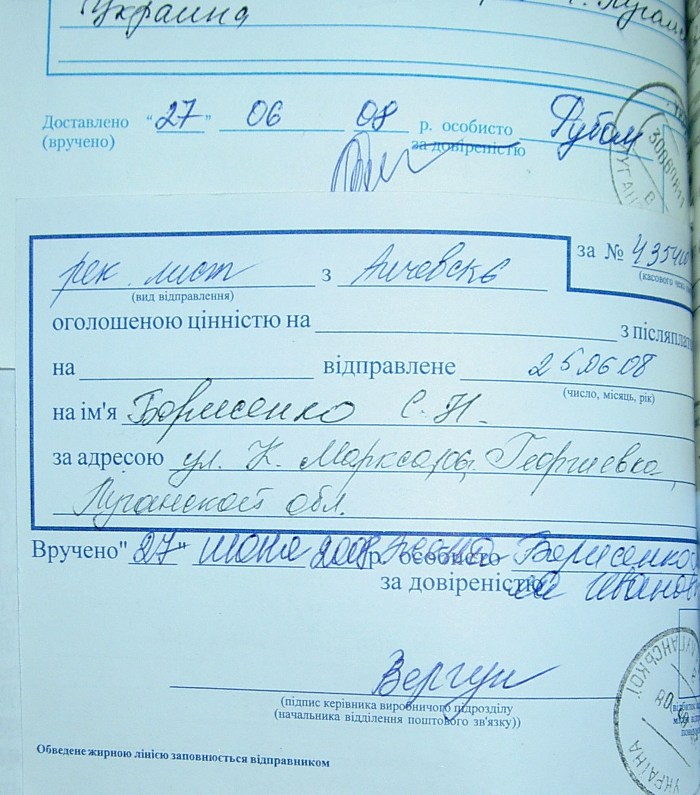 Украина
Доставлено "27" 06 08 р. особисто
(вручено) за довіреністю
рек. лист з Алчевскъ за № 435400
(вид відправлення) (касового
оголошеною цінністю на з післяплат
на відправлене 25.06.08
(число, місяць, рік)
на ім'я Борисенко С. Н.
за адресою ул. К. Маркса Георгиевка,
Луганской обл.
Вручено "27" июня 2008 р. особисто Борисенко
за довіреністю
Вергун
(підпис керівника виробничого підрозділу
(начальника відділення поштового зв'язку))
Обведене жирною лінією заповнюється відправником
ЛУГАНСЬКОЇ
УКРАЇНА